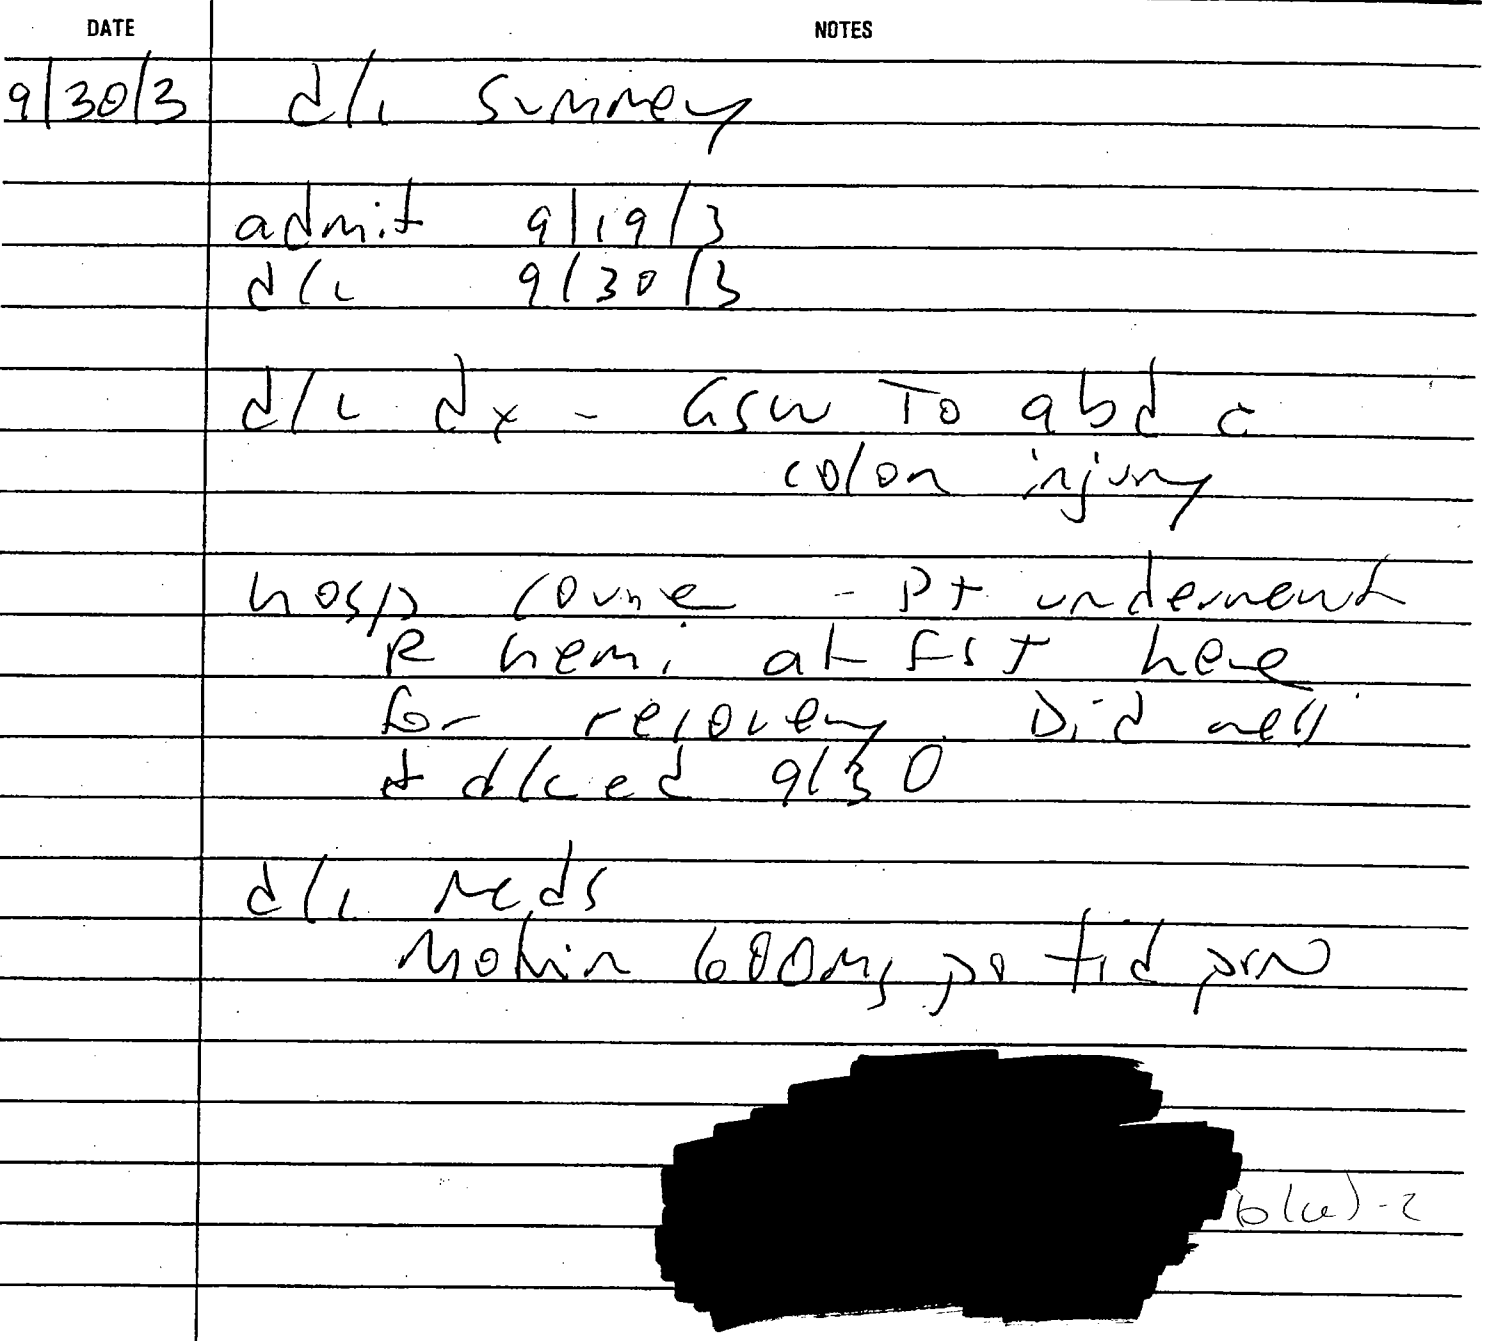 DATE NOTES
9/30/3 d/c summary
admit 9/19/3
d/c 9/30/3
d/c dx - GSW To abd c̄
colon injury
hosp course - Pt underwent
R hemi at FST here
for recovery. Did well
+ d/ced 9/30
d/c meds
Motrin 600mg po tid prn
b(6)-2